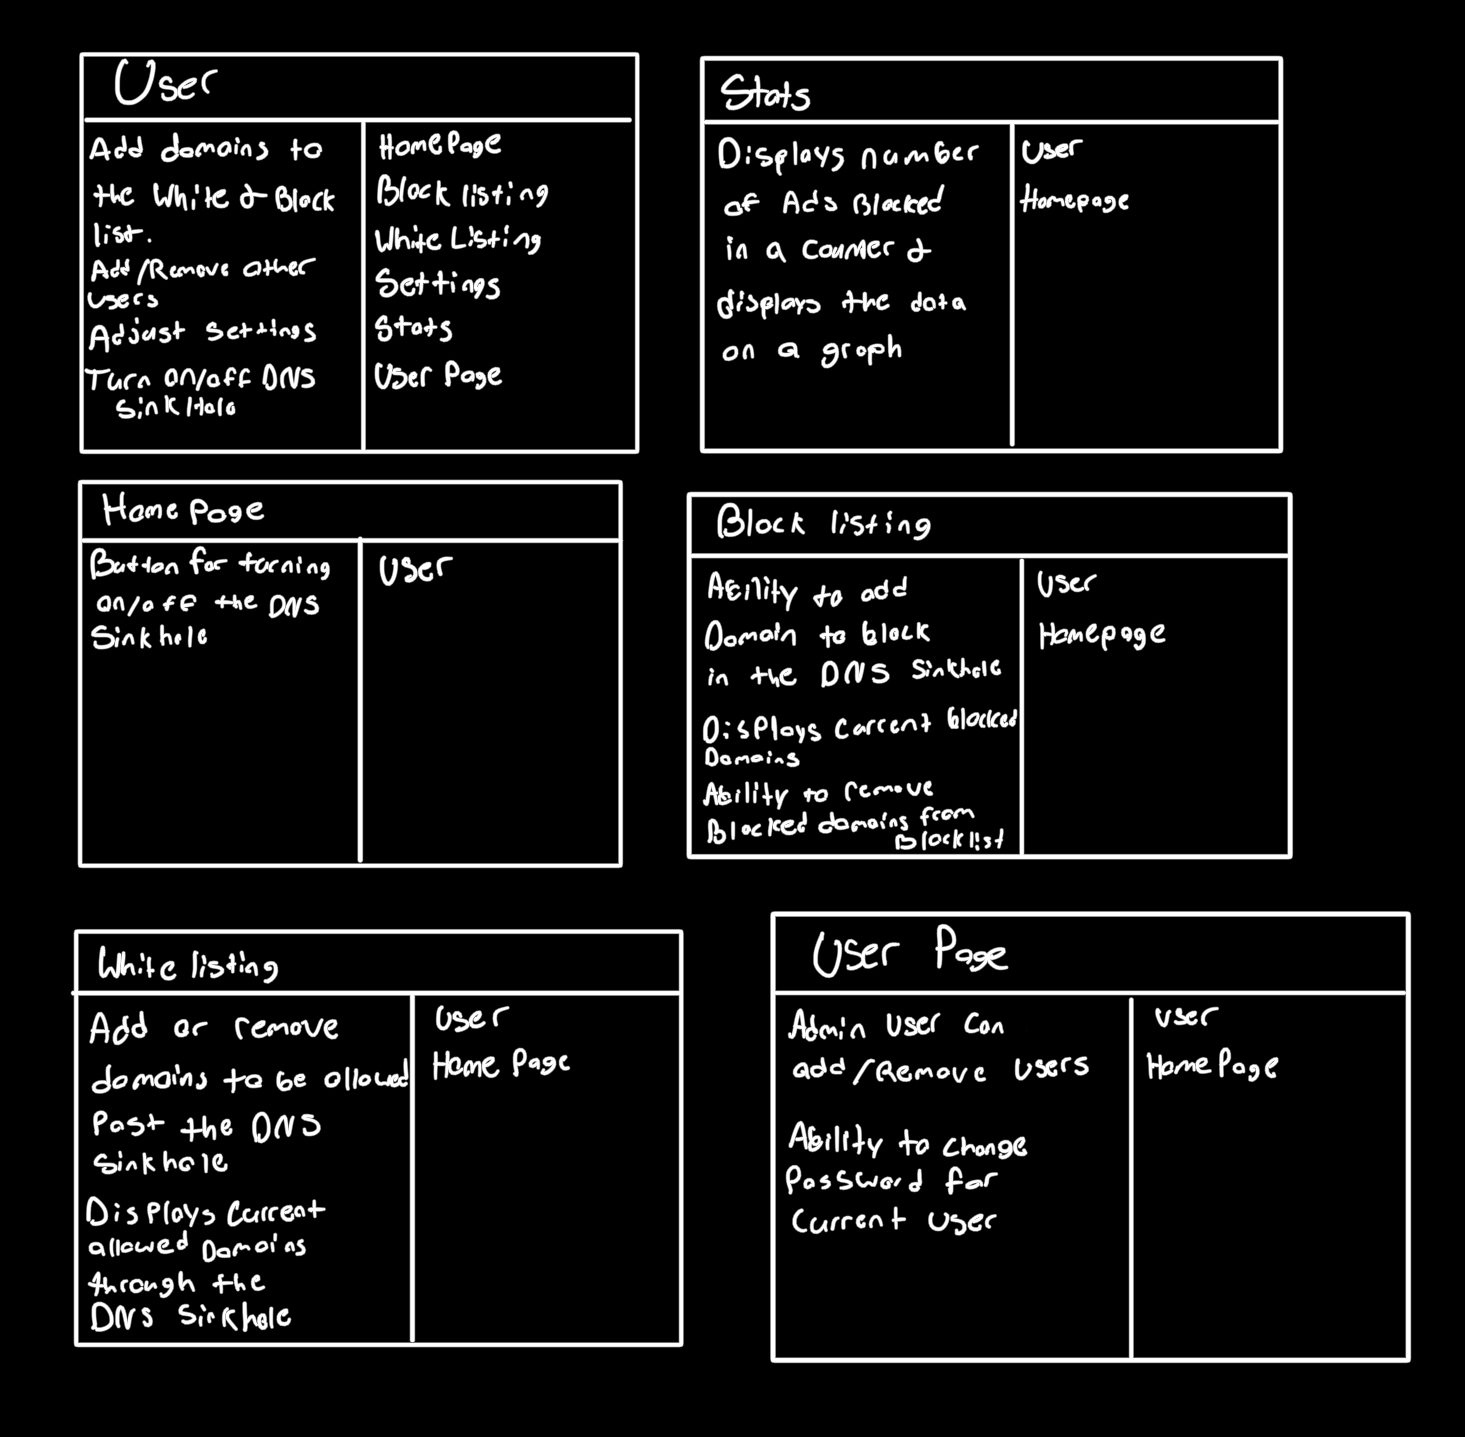 User
Add domains to
the White & Block
list.
Add/Remove other
users
Adjust settings
Turn on/off DNS
SinkHole
HomePage
Block listing
White Listing
Settings
Stats
User Page
Stats
Displays number
of Ads Blocked
in a Counter &
displays the data
on a graph
User
Homepage
Home Page
Button for turning
on/off the DNS
Sinkhole
User
Block listing
Ability to add
Domain to block
in the DNS Sinkhole
Displays current blocked
Domains
Ability to remove
Blocked domains from
Blocklist
User
Homepage
White listing
Add or remove
domains to be allowed
Past the DNS
sinkhole
Displays Current
allowed Domains
through the
DNS Sinkhole
User
Home Page
User Page
Admin User Can
add/Remove Users
Ability to change
Password for
Current User
User
Home Page